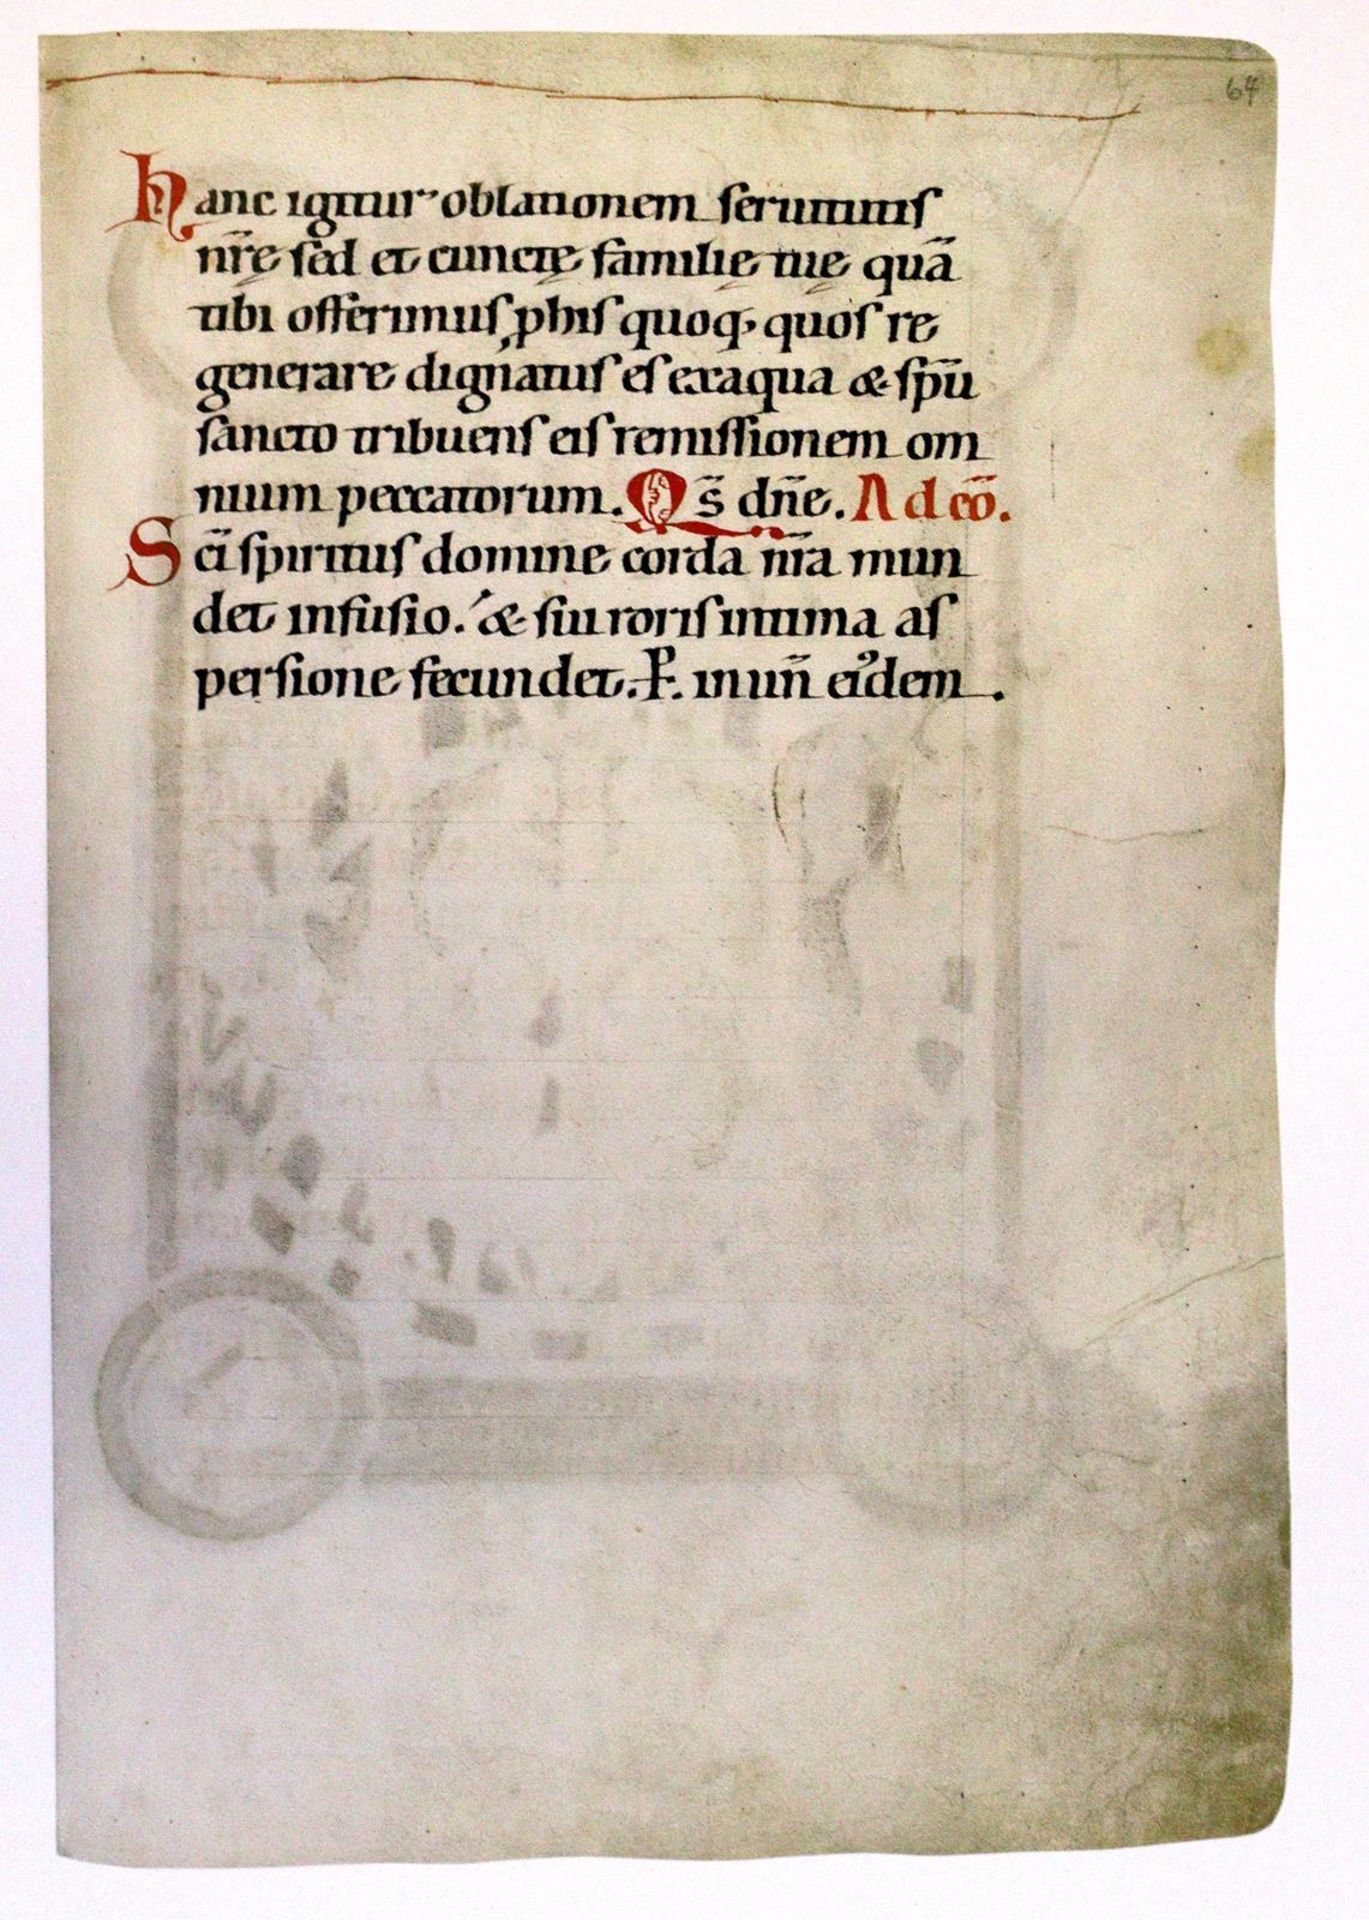 64
hanc igitur oblationem seruitutis
nr̄ę sed et cunctę familię tuę quā
tibi offerimus, p his quoq; quos re
generare dignatus es ex aqua & sp̄u
sancto tribuens eis remissionem om
nium peccatorum. Qs̄ dn̄e. Ad cō.
Sc̄i spiritus domine corda nr̄a mun
det infusio. & sui roris intima as
persione fecundet. P. in un̄ eiꝰdem.